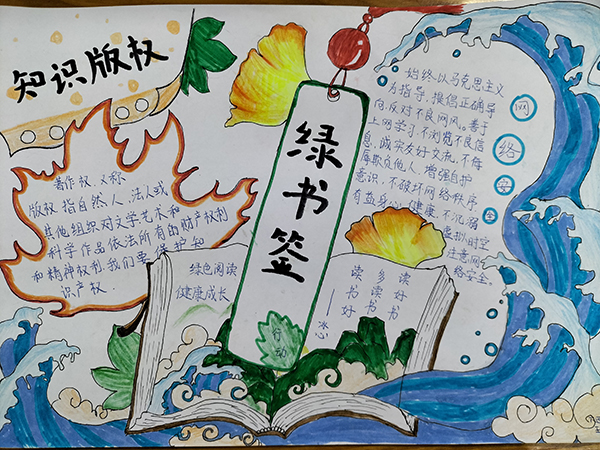 知识版权
著作权，又称
版权，指自然人、法人或
其他组织对文学艺术和
科学作品依法所有的财产权利
和精神权利。我们要保护知
识产权。
绿书签
行动
绿色阅读
健康成长
读好书
多读书
读书好
——冰心
始终以马克思主义
为指导，提倡正确导
向，反对不良网风。善于
上网学习，不浏览不良信
息，诚实友好交流，不侮
辱欺负他人，增强自护
意识，不破坏网络秩序
有益身心健康，不沉溺
虚拟时空
注意网
络安全。
网
络
安
全